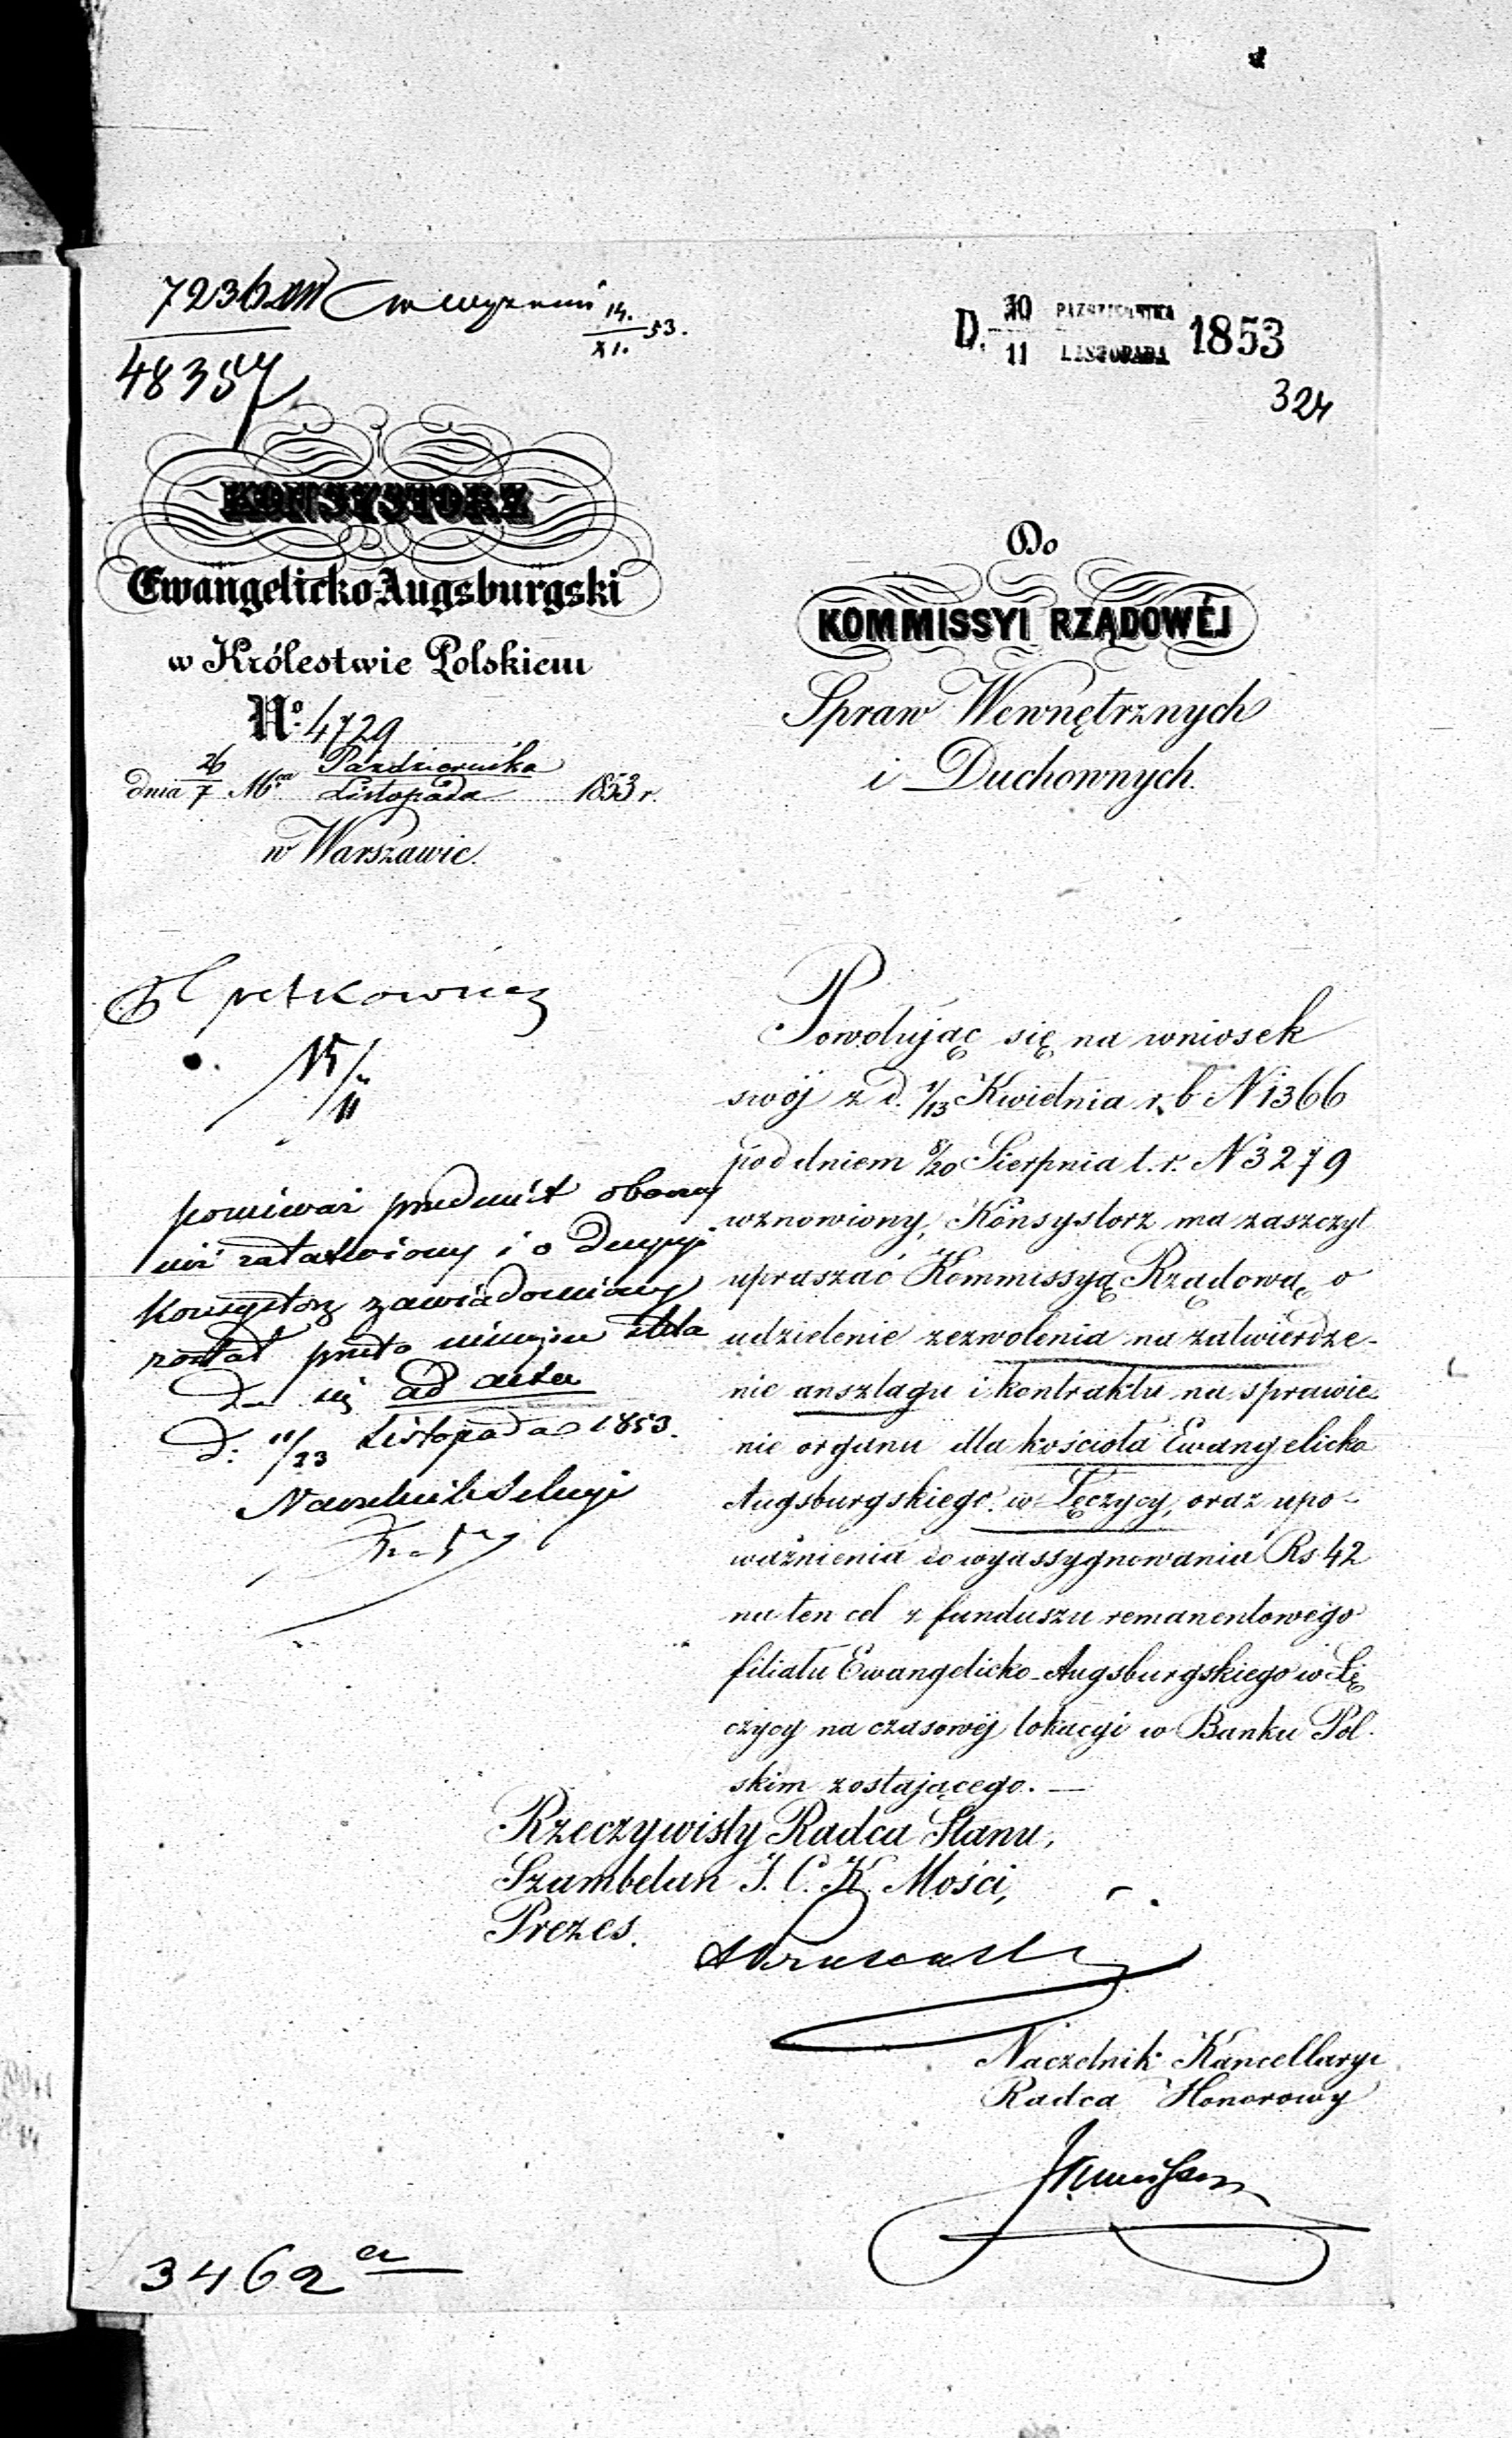 7236
48357
14.
XI. 53.
D. 30 PAZDZIERNIKA
11 LISTOPADA 1853
324
KONSYSTORZ
Ewangelicko-Augsburgski
w Królestwie Polskiem
No. 4729
dnia 26/7 Mca Października/Listopada 1853 r.
w Warszawie.
Do
KOMMISSYI RZĄDOWÉJ
Spraw Wewnętrznych
i Duchownych.
15/11
ponieważ przedmiot obecny
już załatwiony i o decyzyi
Konsystorz zawiadomiony
został przeto niniejsze
ad acta
D: 11/23 Listopada 1853.
Naczelnik Sekcyi
Powołując się na wniosek
swój z d. 1/13 Kwietnia r. b N 1366
pod dniem 8/20 Sierpnia t. r. N 3279
wznowiony, Konsystorz ma zaszczyt
upraszać Kommissyą Rządową o
udzielenie zezwolenia na zatwierdze-
nie anszlagu i kontraktu na sprawie-
nie organu dla kościoła Ewangelicko
Augsburgskiego w Łęczycy, oraz upo-
ważnienia do wyassygnowania Rs 42
na ten cel z funduszu remanentowego
filiału Ewangelicko-Augsburgskiego w Łę
czycy na czasowéj lokacyi w Banku Pol
skim zostającego. —
Rzeczywisty Radca Stanu,
Szambelan J. C. K. Mości,
Prezes.
Naczelnik Kancellaryi
Radca Honorowy
3462